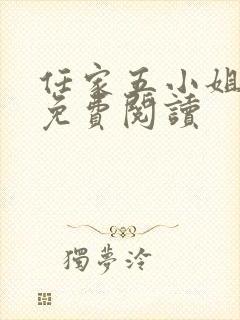 任家五小姐
免費閱讀
獨夢泠